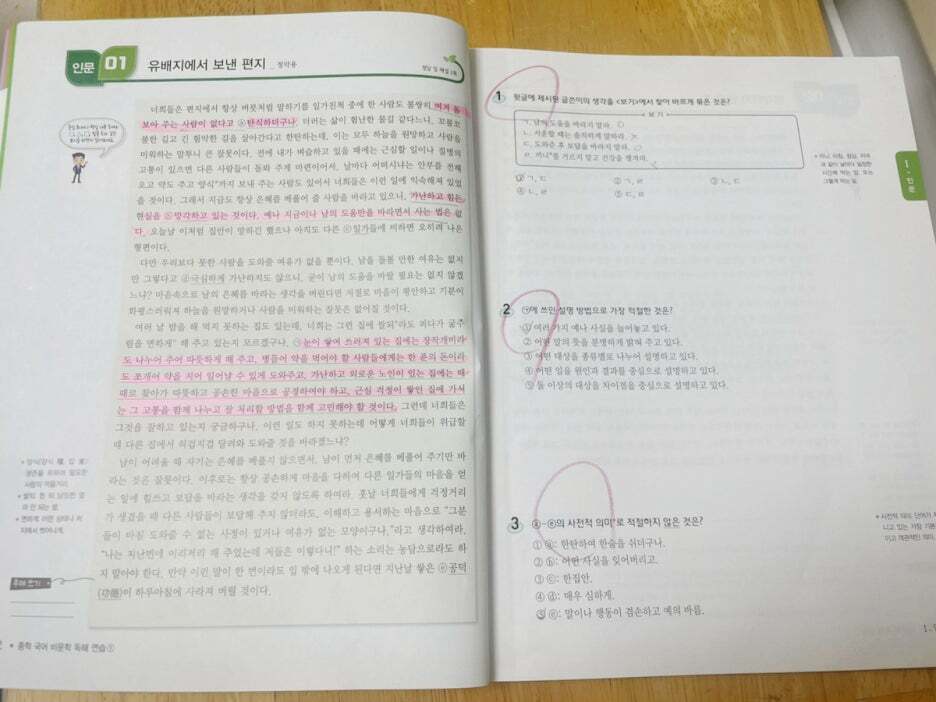 인문 01 유배지에서 보낸 편지 _ 정약용
정답 및 해설 2쪽
너희들은 편지에서 항상 버릇처럼 말하기를 일가친척 중에 한 사람도 불쌍히 여겨 돌
보아 주는 사람이 없다고 ⓐ탄식하더구나. 더러는 삶이 험난한 물길 같다느니, 꼬불꼬
불한 길고 긴 험악한 길을 살아간다고 한탄하는데, 이는 모두 하늘을 원망하고 사람을
미워하는 말투니 큰 잘못이다. 전에 내가 벼슬하고 있을 때에는 근심할 일이나 질병의
고통이 있으면 다른 사람들이 돌봐 주게 마련이어서, 날마다 어떠시냐는 안부를 전해
오고 약도 주고 양식까지 보내 주는 사람도 있어서 너희들은 이런 일에 익숙해져 있었
을 것이다. 그래서 지금도 항상 은혜를 베풀어 줄 사람을 바라고 있으니, 가난하고 힘든
현실을 ⓑ망각하고 있는 것이다. 예나 지금이나 남의 도움만을 바라면서 사는 법은 없
다. 오늘날 이처럼 집안이 망하긴 했으나 아직도 다른 ⓒ일가들에 비하면 오히려 나은
형편이다.
다만 우리보다 못한 사람을 도와줄 여유가 없을 뿐이다. 남을 돌볼 만한 여유는 없지
만 그렇다고 ⓓ극심하게 가난하지도 않으니, 굳이 남의 도움을 바랄 필요는 없지 않겠
느냐? 마음속으로 남의 은혜를 바라는 생각을 버린다면 저절로 마음이 평안하고 기분이
화평스러워져 하늘을 원망하거나 사람을 미워하는 잘못은 없어질 것이다.
여러 날 밥을 해 먹지 못하는 집도 있는데, 너희는 그런 집에 쌀되라도 퍼다가 굶주
림을 면하게 해 주고 있는지 모르겠구나. ㉠눈이 쌓여 쓰러져 있는 집에는 장작개비라
도 나누어 주어 따뜻하게 해 주고, 병들어 약을 먹어야 할 사람들에게는 한 푼의 돈이라
도 쪼개어 약을 지어 일어날 수 있게 도와주고, 가난하고 외로운 노인이 있는 집에는 때
때로 찾아가 따뜻하고 공손한 마음으로 공경하여야 하고, 근심 걱정이 쌓인 집에 가서
는 그 고통을 함께 나누고 잘 처리할 방법을 함께 고민해야 할 것이다. 그런데 너희들은
그것을 잘하고 있는지 궁금하구나. 이런 일도 하지 못하는데 어떻게 너희들이 위급할
때 다른 집에서 허겁지겁 달려와 도와줄 것을 바라겠느냐?
남이 어려울 때 자기는 은혜를 베풀지 않으면서, 남이 먼저 은혜를 베풀어 주기만 바
라는 것은 잘못이다. 이후로는 항상 공손하게 마음을 다하여 다른 일가들의 마음을 얻
는 일에 힘쓰고 보답을 바라는 생각을 갖지 않도록 하여라. 훗날 너희들에게 걱정거리
가 생겼을 때 다른 사람들이 보답해 주지 않더라도, 이해하고 용서하는 마음으로 "그분
들이 마침 도와줄 수 없는 사정이 있거나 여유가 없는 모양이구나."라고 생각하여라.
"나는 지난번에 이러저러 해 주었는데 저들은 이렇다니!" 하는 소리는 농담으로라도 하
지 말아야 한다. 만약 이런 말이 한 번이라도 입 밖에 나오게 된다면 지난날 쌓은 ⓔ공덕
(功德)이 하루아침에 사라져 버릴 것이다.
어휘 쓰기
중학 국어 비문학 독해 연습 ①
1 윗글에 제시된 글쓴이의 생각을 <보기>에서 찾아 바르게 묶은 것은?
보기
ㄱ. 남의 도움을 바라지 말라.
ㄴ. 서운할 때는 솔직하게 말하라.
ㄷ. 도와준 후 보답을 바라지 말라.
ㄹ. 끼니를 거르지 말고 건강을 챙겨라.
① ㄱ, ㄷ ② ㄱ, ㄹ ③ ㄴ, ㄷ
④ ㄴ, ㄹ ⑤ ㄷ, ㄹ
Ⅰ · 인문
2 ㉠에 쓰인 설명 방법으로 가장 적절한 것은?
① 여러 가지 예나 사실을 늘어놓고 있다.
② 어떤 말의 뜻을 분명하게 밝혀 주고 있다.
③ 어떤 대상을 종류별로 나누어 설명하고 있다.
④ 어떤 일을 원인과 결과를 중심으로 설명하고 있다.
⑤ 둘 이상의 대상을 차이점을 중심으로 설명하고 있다.
3 ⓐ~ⓔ의 사전적 의미로 적절하지 않은 것은?
① ⓐ: 한탄하여 한숨을 쉬더구나.
② ⓑ: 어떤 사실을 잊어버리고.
③ ⓒ: 한집안.
④ ⓓ: 매우 심하게.
⑤ ⓔ: 말이나 행동이 겸손하고 예의 바름.